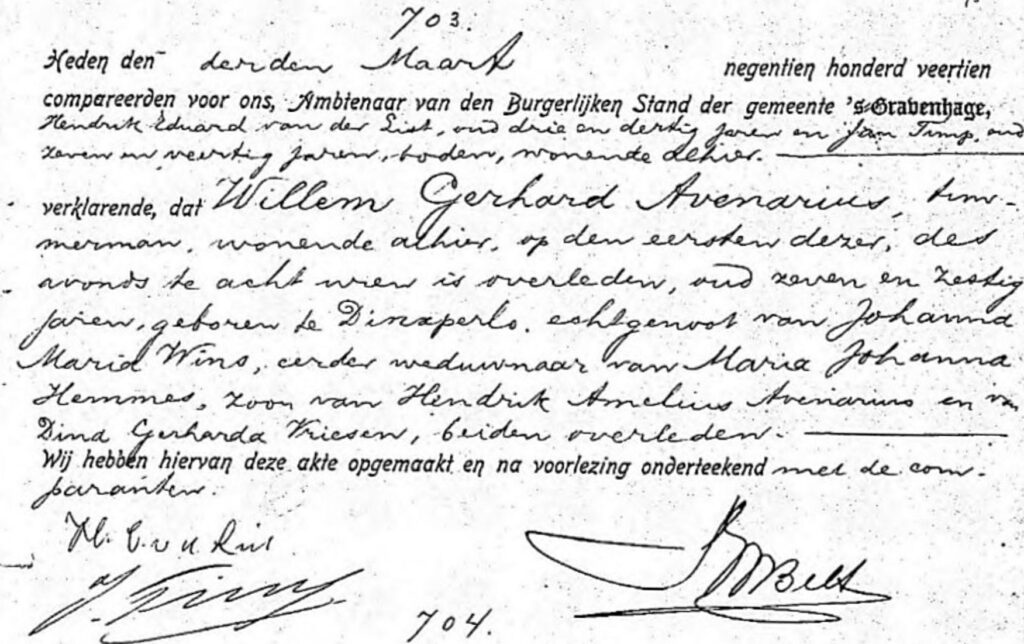 703.
Heden den derden Maart negentien honderd veertien
compareerden voor ons, Ambtenaar van den Burgerlijken Stand der gemeente 's-Gravenhage,
Hendrik Eduard van der List, oud drie en dertig jaren en Jan Timp, oud
zeven en veertig jaren, boden, wonende alhier.
verklarende, dat Willem Gerhard Avenarius, tim-
merman, wonende alhier, op den eersten dezer, des
avonds te acht uren is overleden, oud zeven en zestig
jaren, geboren te Dinxperlo, echtgenoot van Johanna
Maria Wins, eerder weduwnaar van Maria Johanna
Hemmes, zoon van Hendrik Amelius Avenarius en van
Dina Gerharda Vriesen, beiden overleden.
Wij hebben hiervan deze akte opgemaakt en na voorlezing onderteekend met de com-
paranten.
704.